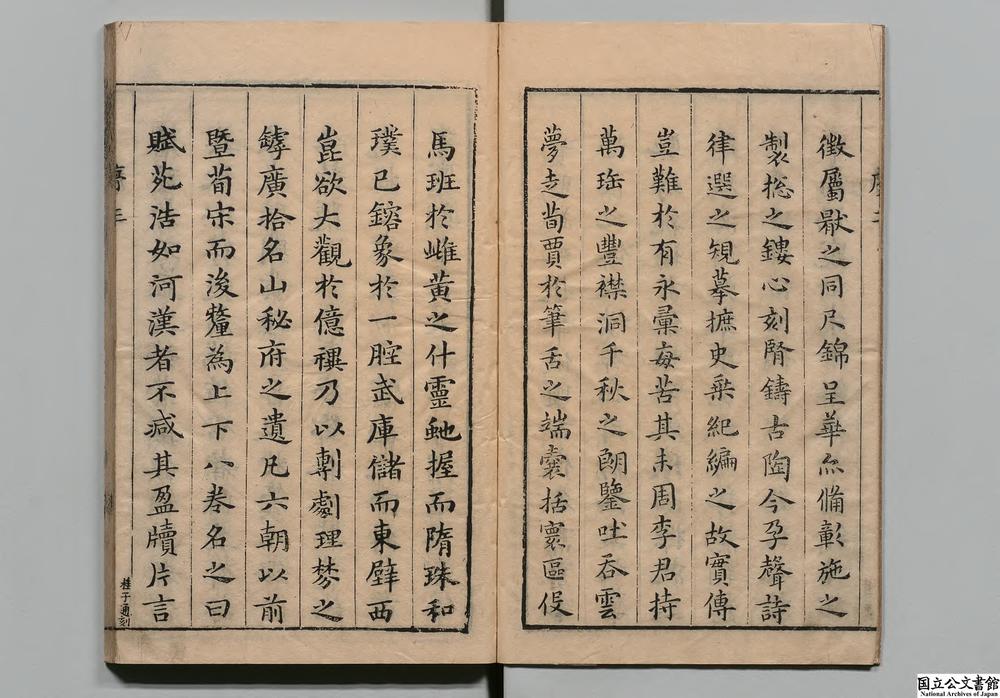 序二
徵屬厭之同尺錦呈華尒備彰施之
製揔之鏤心刻腎鑄古陶今孕聲詩
律選之䂓摹摭史乗紀編之故實傳
豈難於有永彙每苦其未周李君持
萬珤之豐襟洞千秋之朗鑒吐吞雲
夢走荀賈於筆舌之端囊括寰區伇
馬班於雌黄之什靈虵握而隋珠和
璞已鎔象於一腔武庫儲而東壁西
崑欲大觀於億禩乃以剸劇理棼之
罅廣拾名山秘府之遺凡六朝以前
曁荀宋而後釐為上下八卷名之曰
賦苑浩如河漢者不减其盈牘片言
序三
桂子通刻
国立公文書館
National Archives of Japan